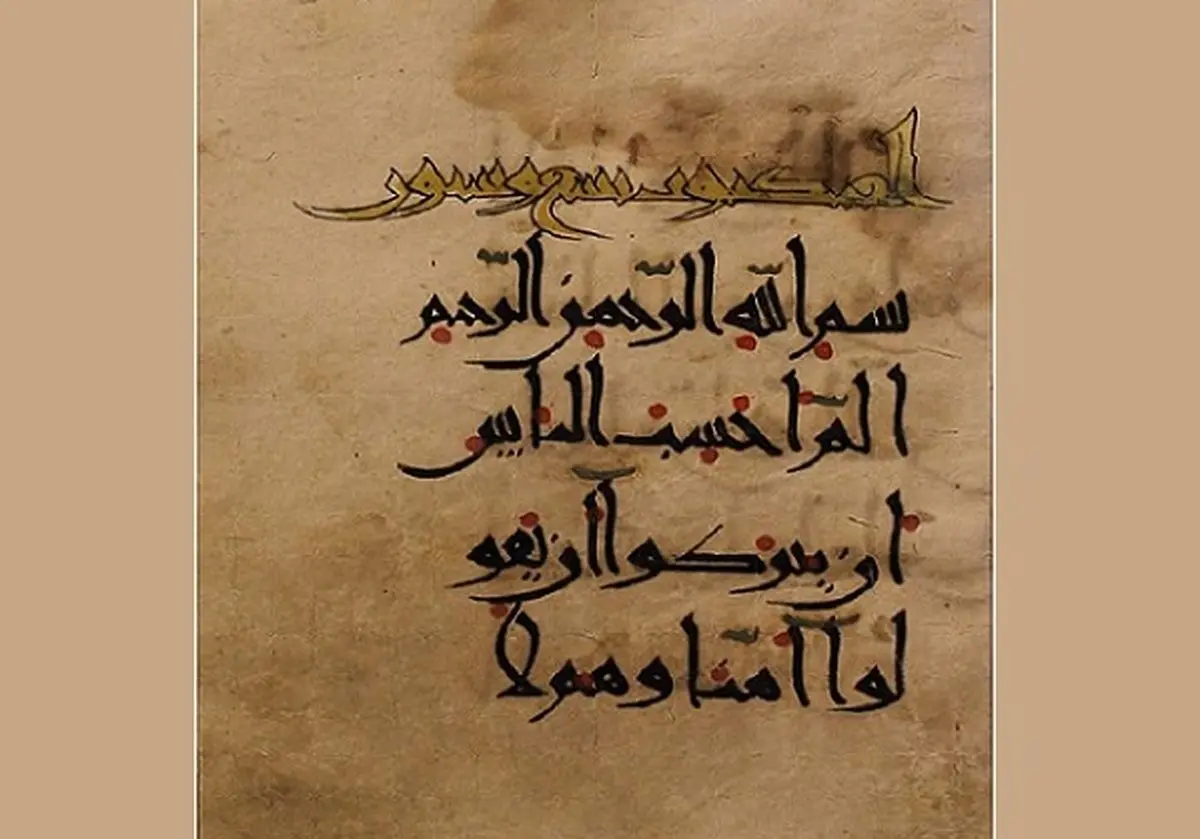 العنكبوت تسع وستون
بسم الله الرّحمن الرّحيم
ا لمّ احسب الناس
ان يتركوا ان يقو
لوا امنا وهم لا